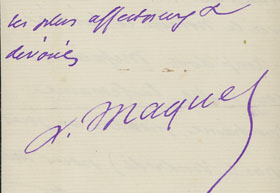 les plus affectueux &
dévoués
A. Maquet